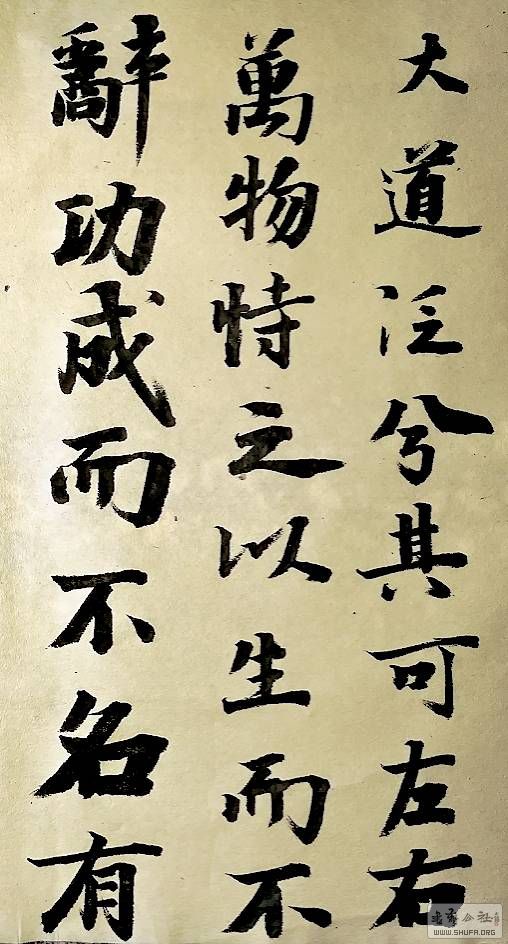 大道泛兮其可左右
萬物恃之以生而不
辭功成而不名有
WWW.SHUFA.ORG